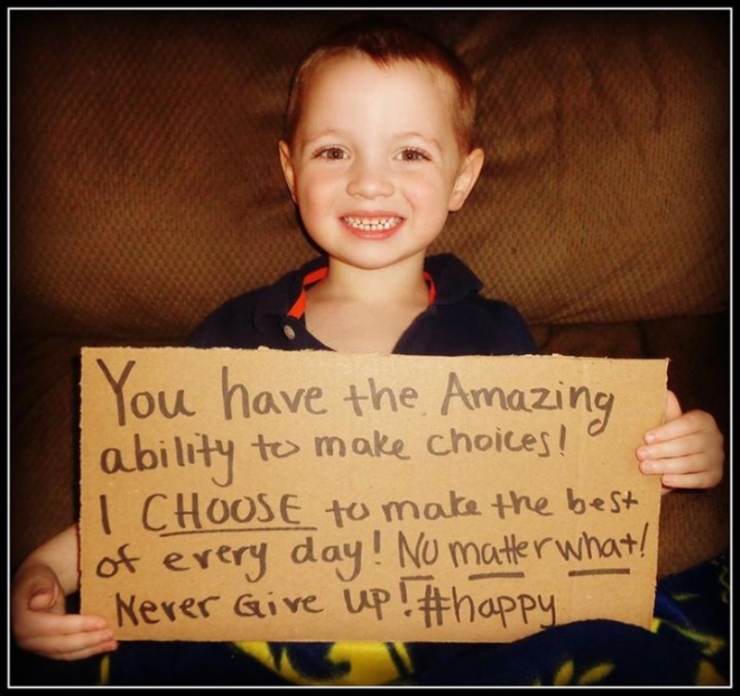 You have the Amazing
ability to make choices!
I CHOOSE to make the best
of every day! NO matter what!
Never Give UP! #happy